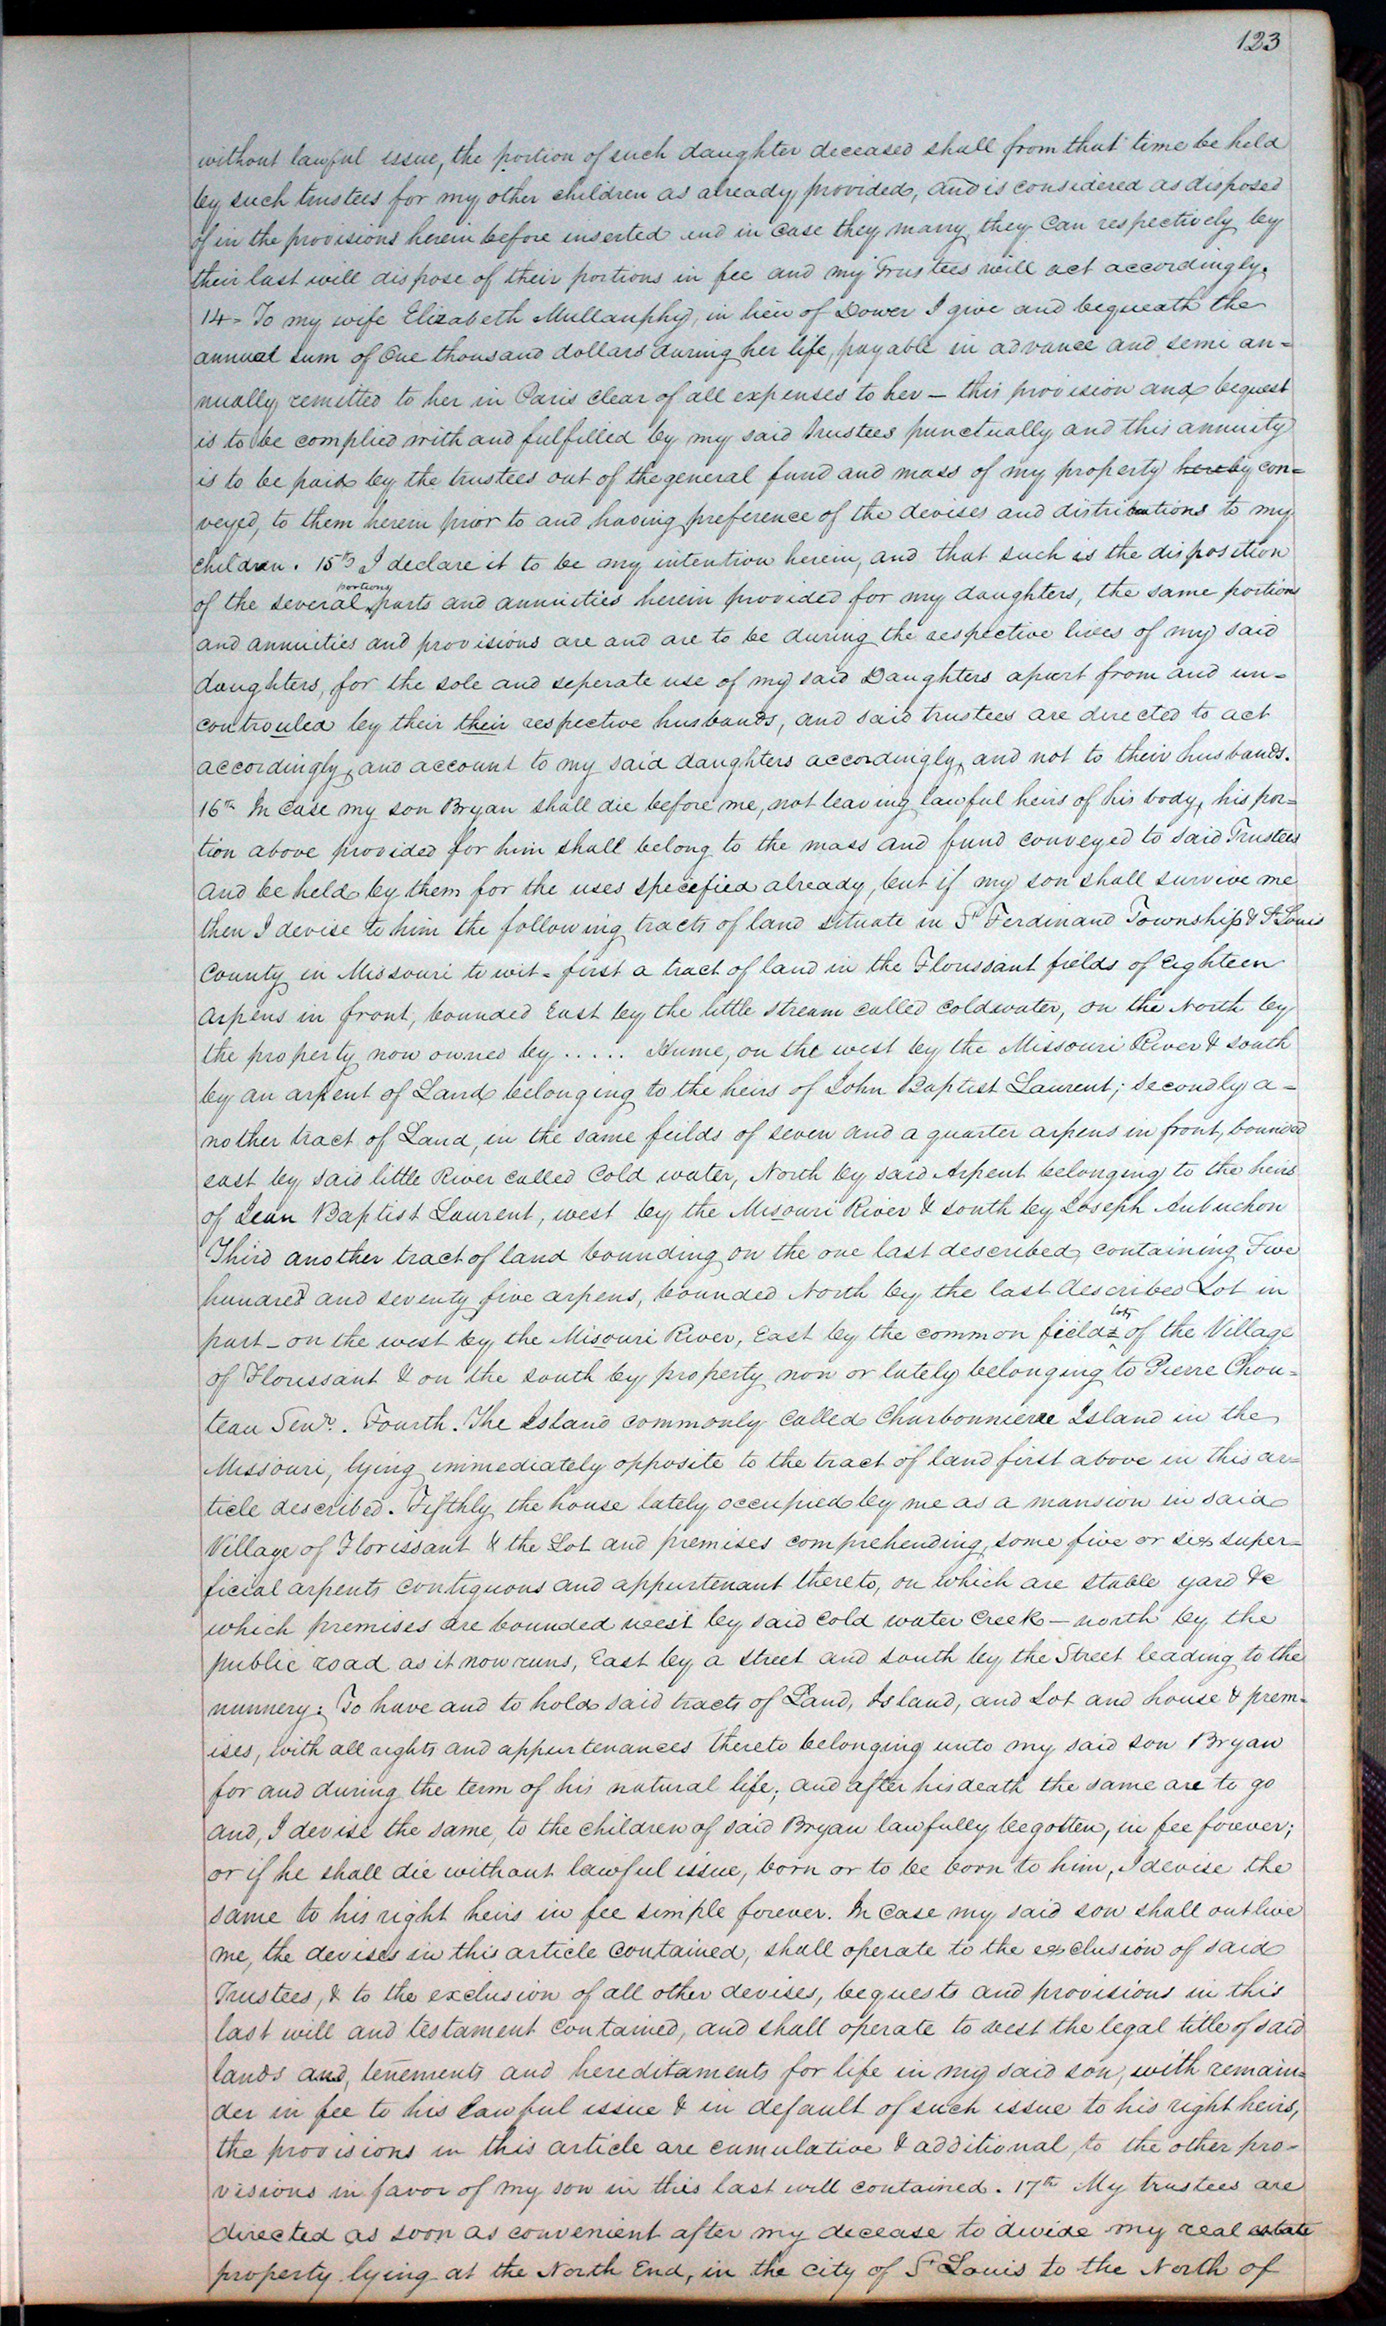 123
without lawful issue, the portion of such daughter deceased shall from that time be held
by such trustees for my other children as already provided, and is considered as disposed
of in the provisions herein before inserted and in case they marry they can respectively by
their last will dispose of their portions in fee and my Trustees will act accordingly.
14 - To my wife Elizabeth Mullanphy, in lieu of Dower I give and bequeath the
annual sum of One thousand dollars during her life, payable in advance and semi an=
nually remitted to her in Paris clear of all expenses to her — this provision and bequest
is to be complied with and fulfilled by my said trustees punctually and this annuity
is to be paid by the trustees out of the general fund and mass of my property hereby con=
veyed, to them herein prior to and having preference of the devises and distributions to my
children. 15th I declare it to be my intention herein, and that such is the disposition
of the several portions parts and annuities herein provided for my daughters, the same portions
and annuities and provisions are and are to be during the respective lives of my said
daughters, for the sole and seperate use of my said Daughters apart from and un=
controuled by their their respective husbands, and said trustees are directed to act
accordingly, and account to my said daughters accordingly, and not to their husbands.
16th In case my son Bryan shall die before me, not leaving lawful heirs of his body, his por=
tion above provided for him shall belong to the mass and fund conveyed to said Trustees
and be held by them for the uses specified already, but if my son shall survive me
then I devise to him the following tracts of land situate in St Ferdinand Township & St Louis
County in Missouri to wit - first a tract of land in the Floussant fields of eighteen
arpens in front, bounded East by the little stream called coldwater, on the North by
the property now owned by ..... Hume, on the west by the Missouri River & south
by an arpent of Land belonging to the heirs of John Baptist Laurent; Secondly a=
nother tract of Land, in the same feilds of seven and a quarter arpens in front, bounded
east by said little River called Cold water, North by said Arpent belonging to the heirs
of Jean Baptist Laurent, west by the Misouri River & south by Joseph Aubuchon
Third another tract of land bounding on the one last described, containing Five
hundred and seventy five arpens, bounded North by the last described Lot in
part - on the west by the Misouri River, East by the common field lots of the Village
of Florissant & on the south by property now or lately belonging to Pierre Chou=
teau Senr. Fourth. The Island commonly called Charbonniere Island in the
Missouri, lying immediately opposite to the tract of land first above in this ar=
ticle described. Fifthly the house lately occupied by me as a mansion in said
Village of Florissant & the Lot and premises comprehending some five or six super=
ficial arpents contiguous and appurtenant thereto, on which are stable yard &c
which premises are bounded west by said Cold water Creek — north by the
public road as it now runs, East by a street and south by the Street leading to the
nunnery: To have and to hold said tracts of Land, Island, and Lot and house & prem=
ises, with all rights and appurtenances thereto belonging unto my said son Bryan
for and during the term of his natural life; and after his death the same are to go
and, I devise the same, to the children of said Bryan lawfully begotten, in fee forever;
or if he shall die without lawful issue, born or to be born to him, I devise the
same to his right heirs in fee simple forever. In case my said son shall outlive
me, the devises in this article contained, shall operate to the exclusion of said
Trustees, & to the exclusion of all other devises, bequests and provisions in this
last will and testament contained, and shall operate to vest the legal title of said
lands and, tenements and hereditaments for life in my said son, with remain=
der in fee to his lawful issue & in default of such issue to his right heirs,
the provisions in this article are cumulative & additional, to the other pro=
visions in favor of my son in this last will contained. 17th My trustees are
directed as soon as convenient after my decease to divide my real estate
property lying at the North End, in the city of St Louis to the North of